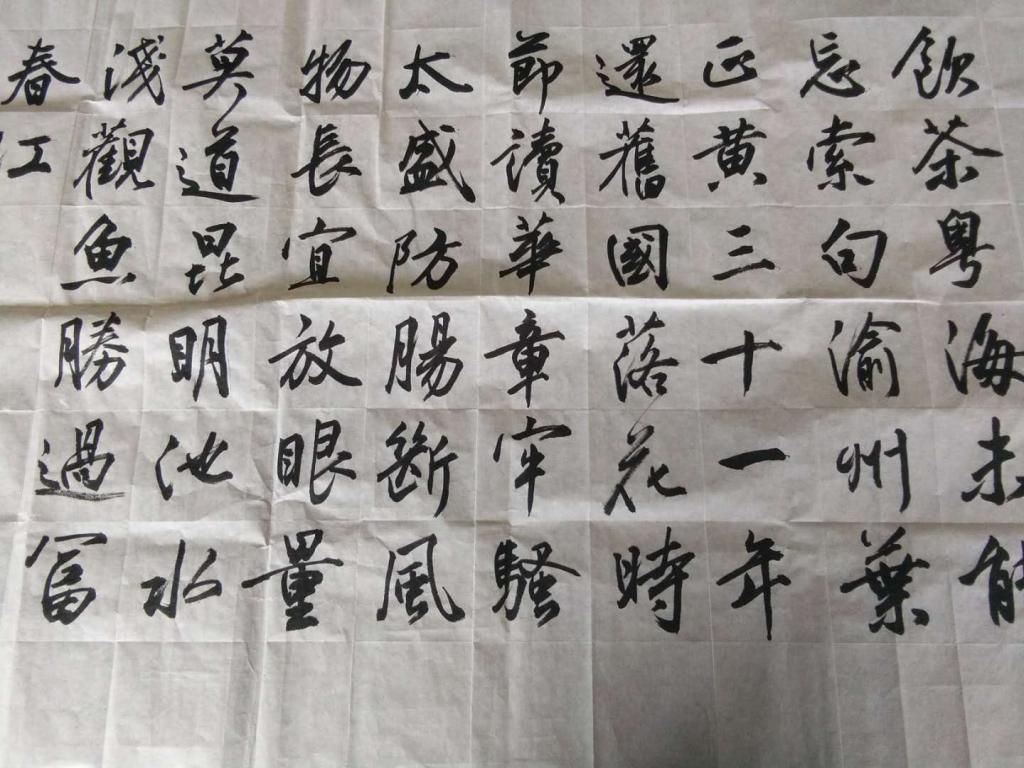 飲茶粵海未能
忘索句渝州葉
正黃三十一年
還舊國落花時
節讀華章牢騷
太盛防腸斷風
物長宜放眼量
莫道昆明池水
淺觀魚勝過富
春江